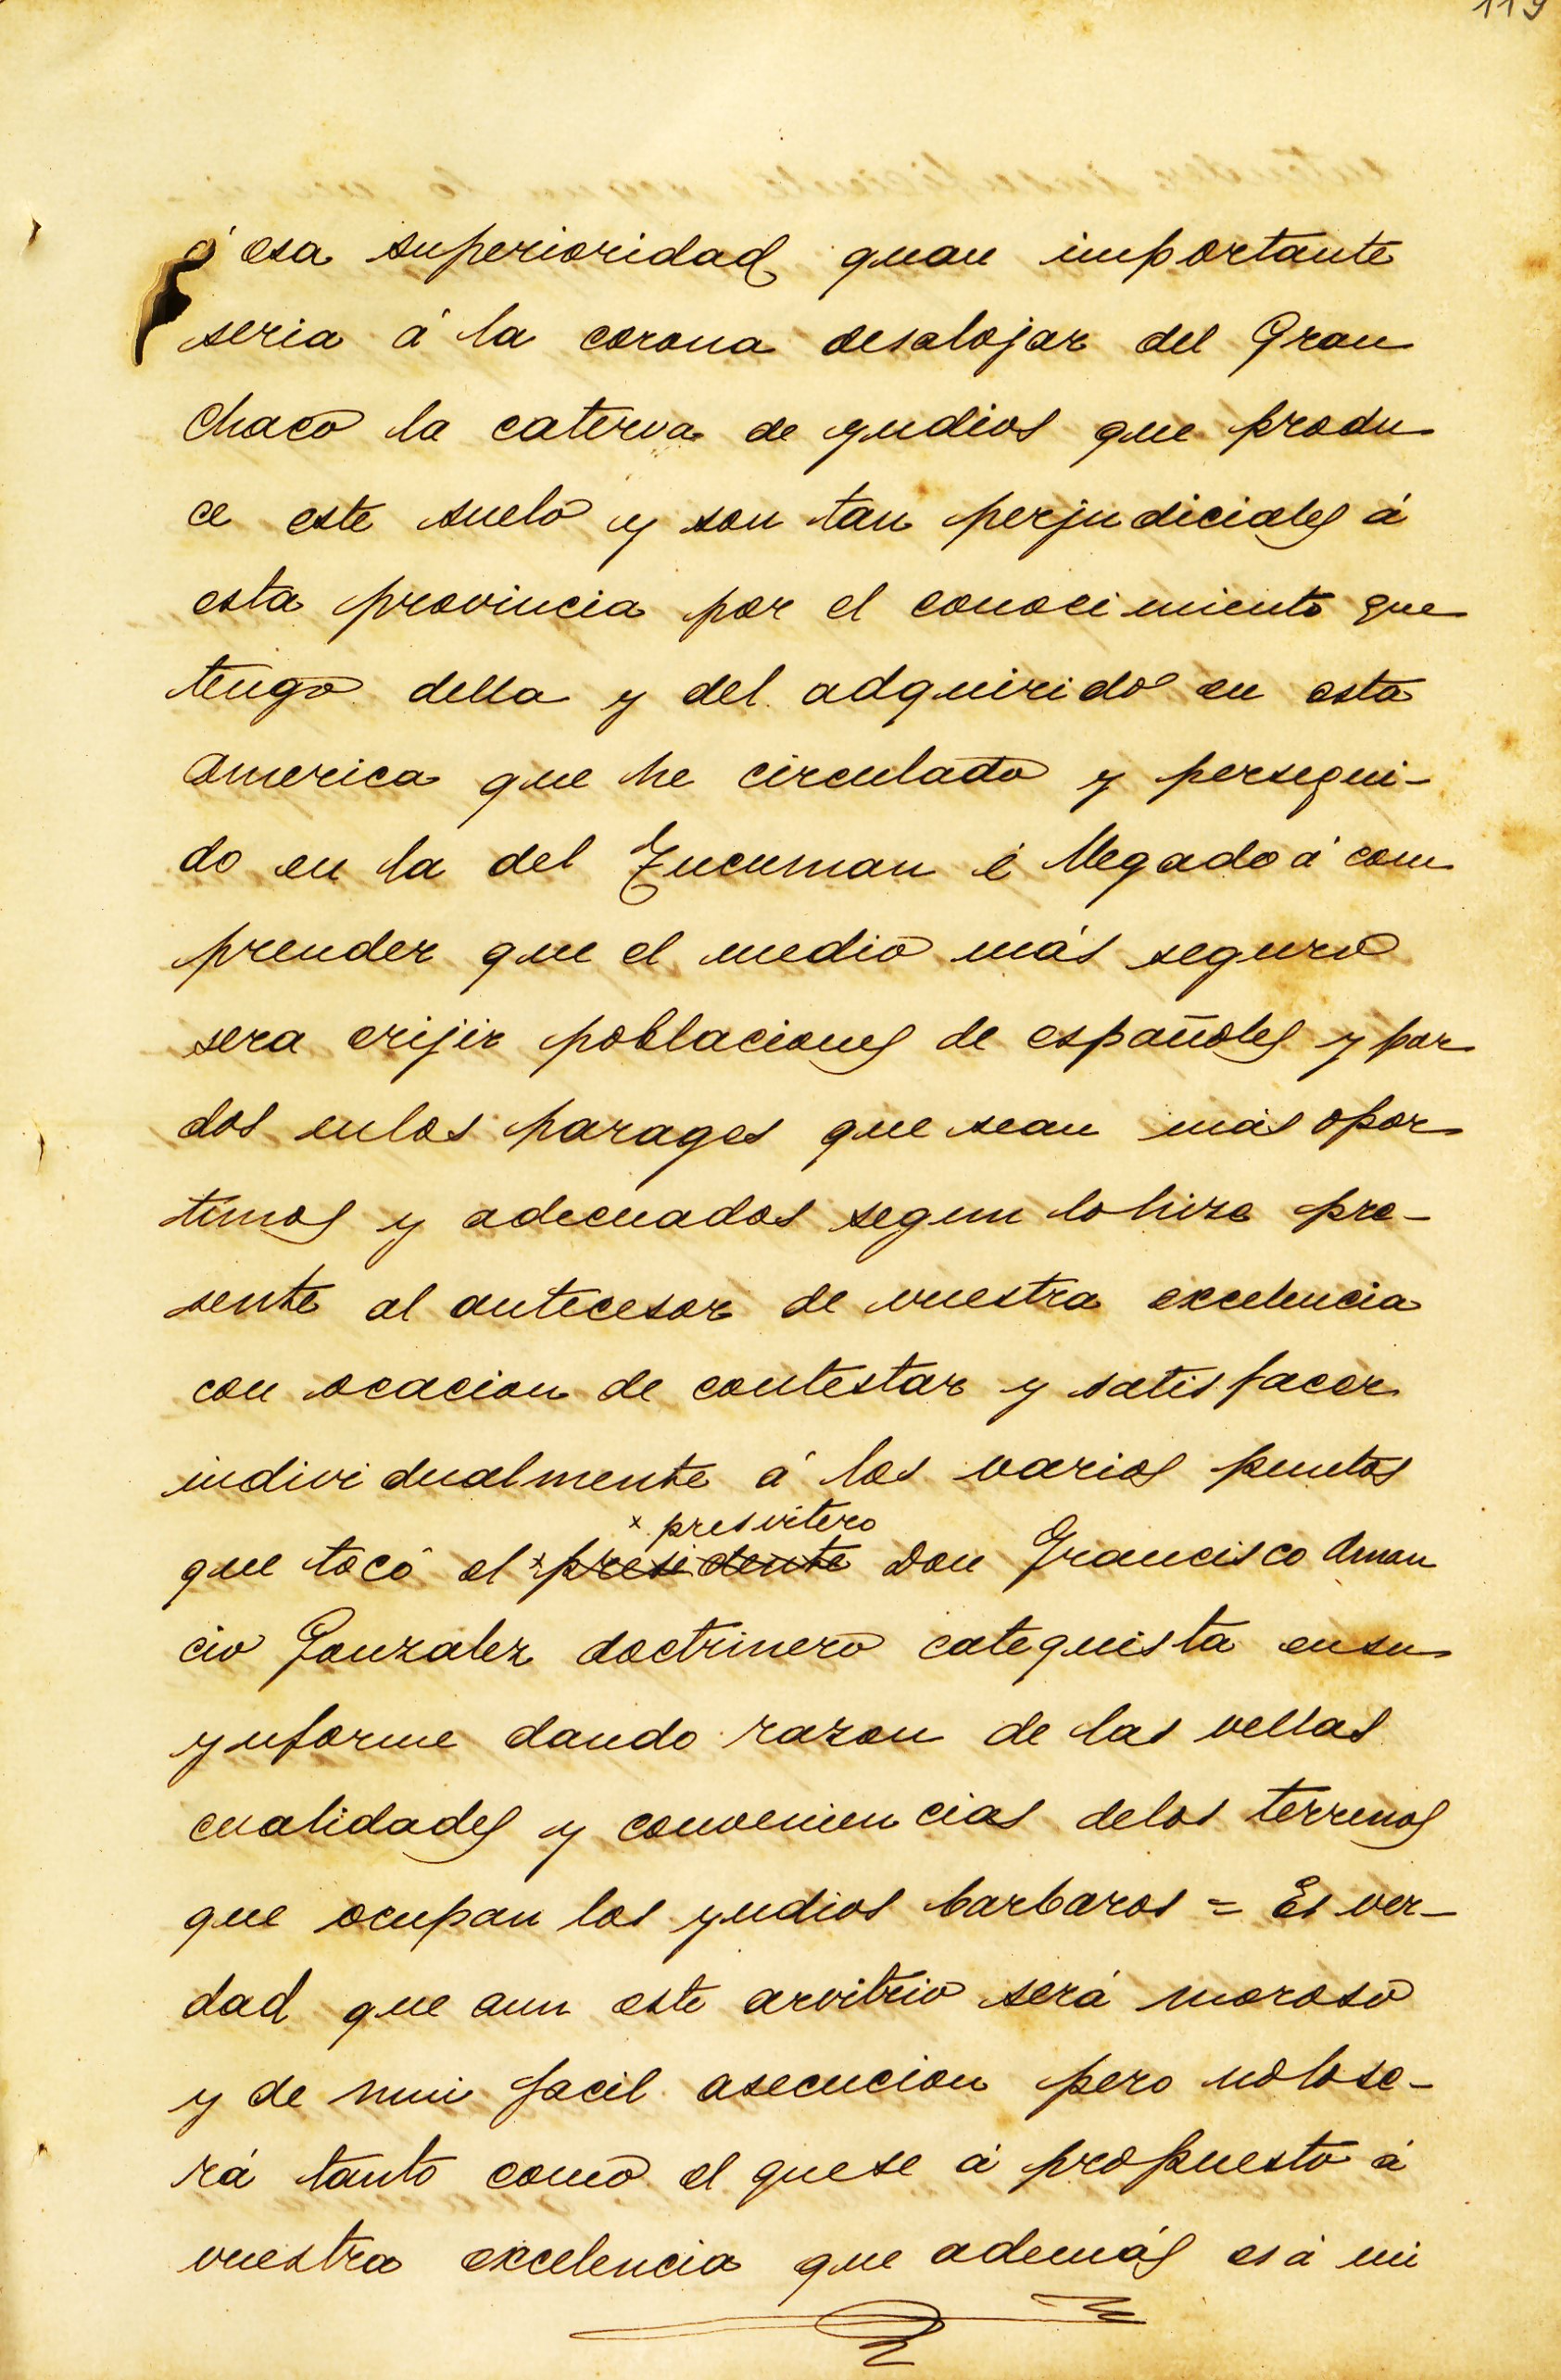 119
á esa superioridad quan importante
seria á la corona desalojar del Gran
Chaco la caterva de yndios que produ
ce este suelo y son tan perjudiciales á
esta provincia por el conocimiento que
tengo della y del adquirido en esta
America que he circulado y persegui-
do en la del Tucuman é llegado á com
prender que el medio más seguro
sera erijir poblaciones de españoles y par
dos enlos parages que sean más opor
tunos y adecuados segun lo hize pre-
sente al antecesor de vuestra excelencia
con ocacion de contestar y satisfacer
individualmente á los varios puntos
x presvitero
que tocó el x presidente Don Francisco Aman
cio Gonzalez doctrinero catequista ensu
ynforme dando razon de las vellas
cualidades y conveniencias delos terrenos
que ocupan los yndios barbaros = Es ver-
dad que aun este arvitrio será moroso
y de mui facil asecucion pero nolose-
rá tanto como el quese á propuesto á
vuestra excelencia que además es á mi